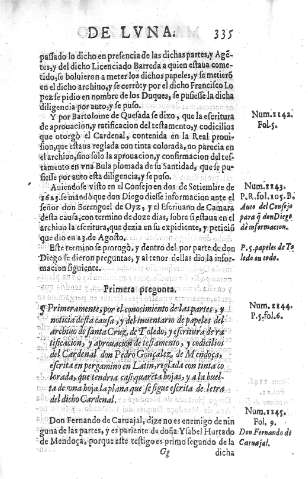 DE LVNA. 335
passado lo dicho en presencia de las dichas partes, y Agẽ-
tes, y del dicho Licenciado Barreda a quien estaua come-
tido, se boluieron a meter los dichos papeles, y se metiero
en el dicho archiuo, y se cerrò y por el dicho Francisco Lo
pez se pidio en nombre de los Duques, se pusiesse la dicha
diligencia por auto, y se puso.
Y por Bartolome de Quesada se dixo, que la escritura
de aprouacion, y ratificacion del testamento, y codicilios
que otorgò el Cardenal, contenida en la Real proui-
sion, que estaua reglada con tinta colorada, no parecia en
el archiuo, sino solo la aprouacion, y confirmacion del tes-
tamento en vna Bula plomada de Santidad, que se pu-
siesse por auto esta diligencia, y se puso.
Num. 1142.
Fol. 5.
Auiendose visto en el Consejo en dos de Setiembre de
1625. se mandò que don Diego diesse informacion ante el
señor don Berenguel de Oyz, y el Escriuano de Camara
desta causa, con termino de doze dias, sobre si estaua en el
archiuo la escritura, que dezia en su expediente, y peticiõ
que dio en 23. de Agosto.
Num. 1143.
P. R. fol. 105. B.
Auto del Consejo
para q̃ don Diego
dè informacion.
Este termino se prorogò, y dentro del por parte de don
Diego se dieron preguntas, y al tenor dellas dio la infor-
macion siguiente.
P. 5. papeles de To
ledo su todo.
Primera pregunta.
Primeramente, por el conocimiento de las partes, y
noticia desta causa, y del inuentario de papeles del
archiuo de santa Cruz, de Toledo, y escritura de ra-
tificacion, y aprouacion de testamento, y codicilios
del Cardenal don Pedro Gonçalez, de Mendoça,
escrita en pergamino en Latin, reglada con tinta co
lorada, que tendria casi quarẽta hojas, y a la buel-
ta de vna hoja la plana que se sigue escrita de letra
del dicho Cardenal.
Num. 1144.
P. 5. fol. 6.
Don Fernando de Caruajal, dize no es enemigo de nin
guna de las partes, y es pariente de doña Ysabel Hurtado
de Mendoça, porque este testigo es primo segundo de la
Num. 1145.
Fol. 9.
Don Fernando de
Caruajal.
Gg dicha